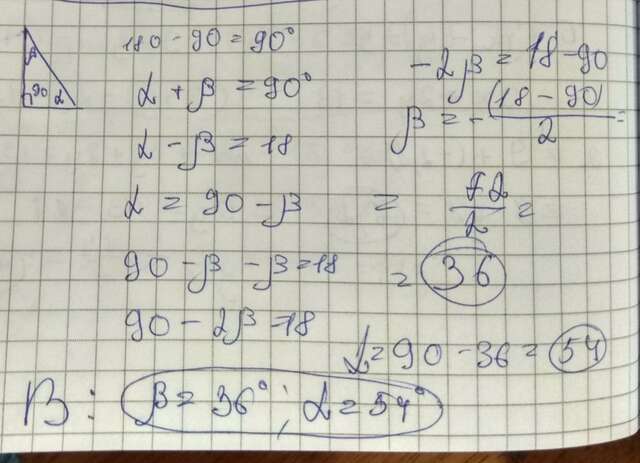 β
90 α
180 - 90 = 90°
α + β = 90°
α - β = 18
α = 90 - β
90 - β - β = 18
90 - 2β = 18
-2β = 18 - 90
β = - (18 - 90) / 2 =
= 72 / 2 =
= 36
α = 90 - 36 = 54
В: β = 36°; α = 54°